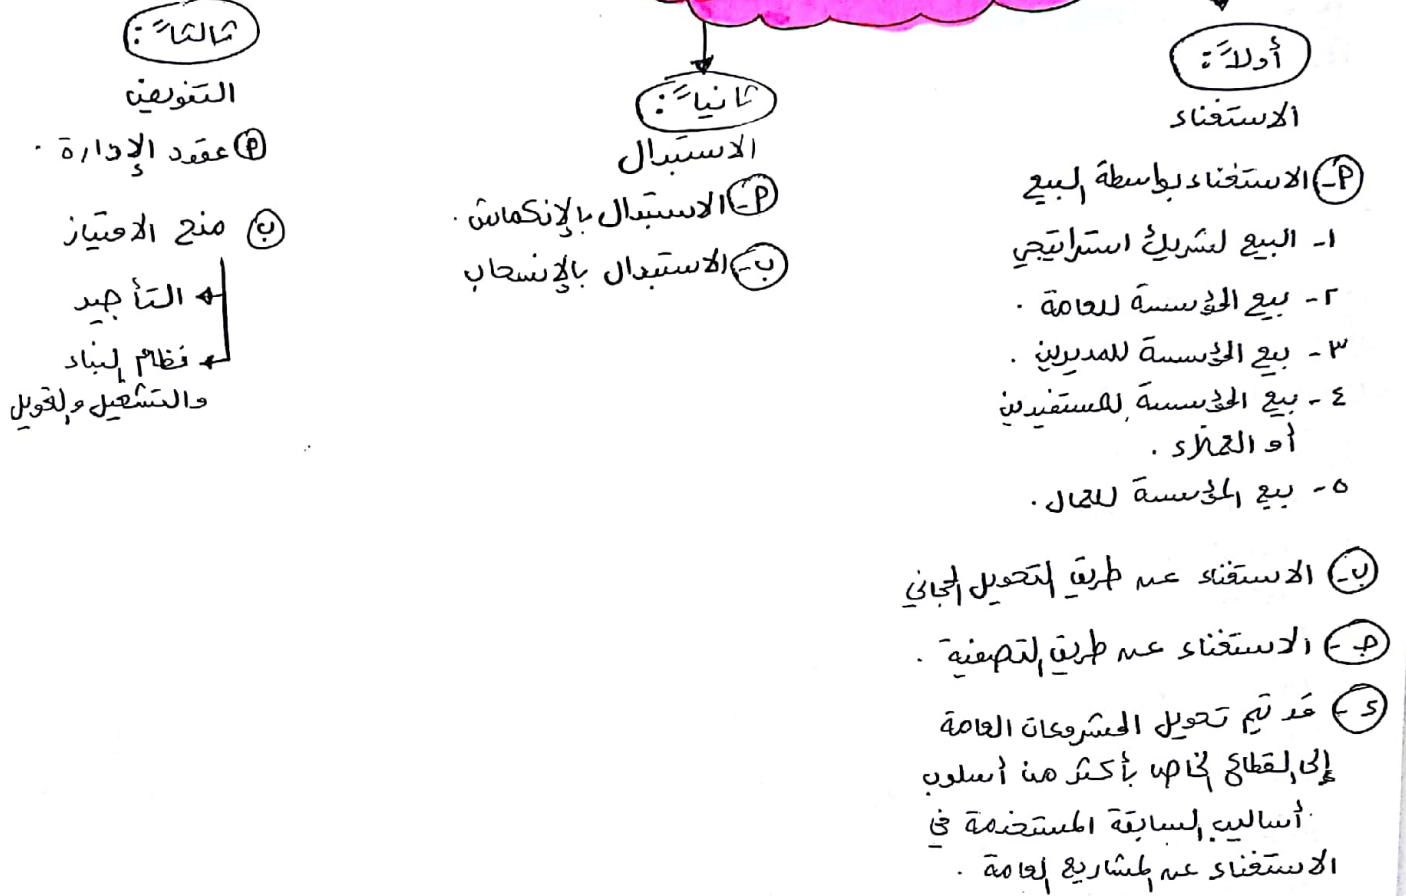 أولاً:
الاستغناء
أ- الاستغناء بواسطة البيع
١- البيع لشريك استراتيجي
٢- بيع المؤسسة للعامة .
٣- بيع المؤسسة للمديرين .
٤- بيع المؤسسة للمستفيدين
أو العملاء .
٥- بيع المؤسسة للعمال .
ب- الاستغناء عن طريق التحويل المجاني
ج- الاستغناء عن طريق التصفية .
د- قد تيم تحويل المشروعات العامة
إلى القطاع الخاص بأكثر من أسلوب
أساليب السابقة المستخدمة في
الاستغناء عن المشاريع العامة .
ثانياً:
الاستبدال
أ- الاستبدال بالإنكماش .
ب- الاستبدال بالإنسحاب
ثالثاً:
التفويض
أ عقود الإدارة .
ب منح الامتياز
التأجير
نظام البناء
والتشغيل والتحويل